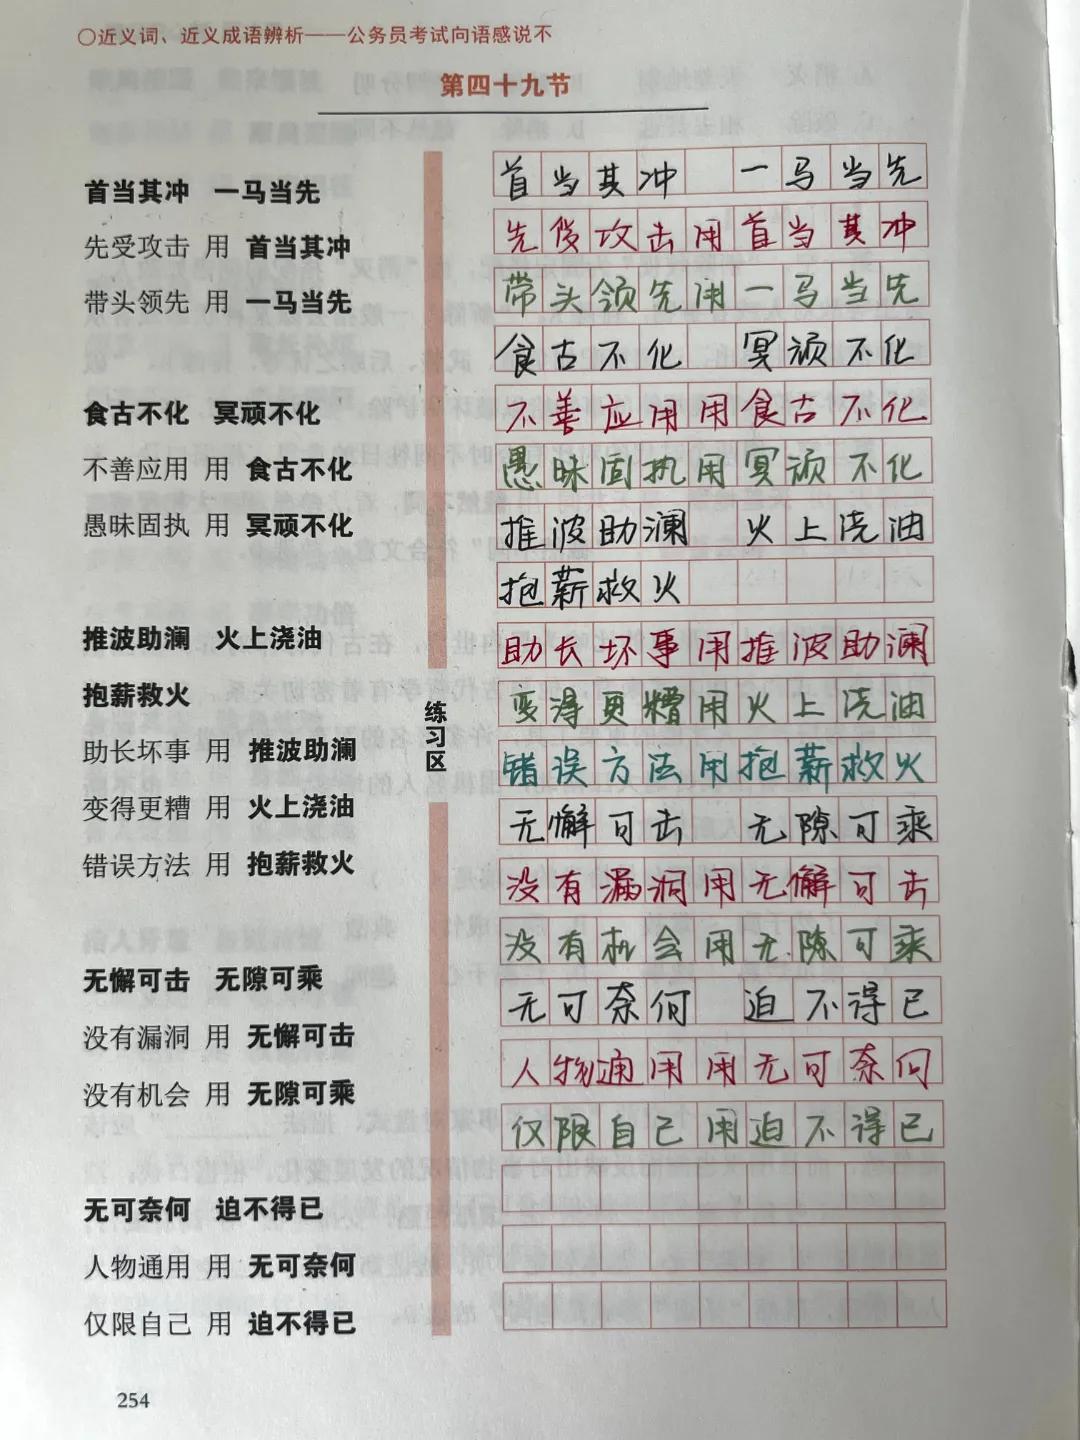 ○近义词、近义成语辨析——公务员考试向语感说不
第四十九节
首当其冲 一马当先
先受攻击 用 首当其冲
带头领先 用 一马当先
食古不化 冥顽不化
不善应用 用 食古不化
愚昧固执 用 冥顽不化
推波助澜 火上浇油
抱薪救火
助长坏事 用 推波助澜
变得更糟 用 火上浇油
错误方法 用 抱薪救火
无懈可击 无隙可乘
没有漏洞 用 无懈可击
没有机会 用 无隙可乘
无可奈何 迫不得已
人物通用 用 无可奈何
仅限自己 用 迫不得已
254
练习区
首当其冲 一马当先
先受攻击用首当其冲
带头领先用一马当先
食古不化 冥顽不化
不善应用用食古不化
愚昧固执用冥顽不化
推波助澜 火上浇油
抱薪救火
助长坏事用推波助澜
变得更糟用火上浇油
错误方法用抱薪救火
无懈可击 无隙可乘
没有漏洞用无懈可击
没有机会用无隙可乘
无可奈何 迫不得已
人物通用用无可奈何
仅限自己用迫不得已